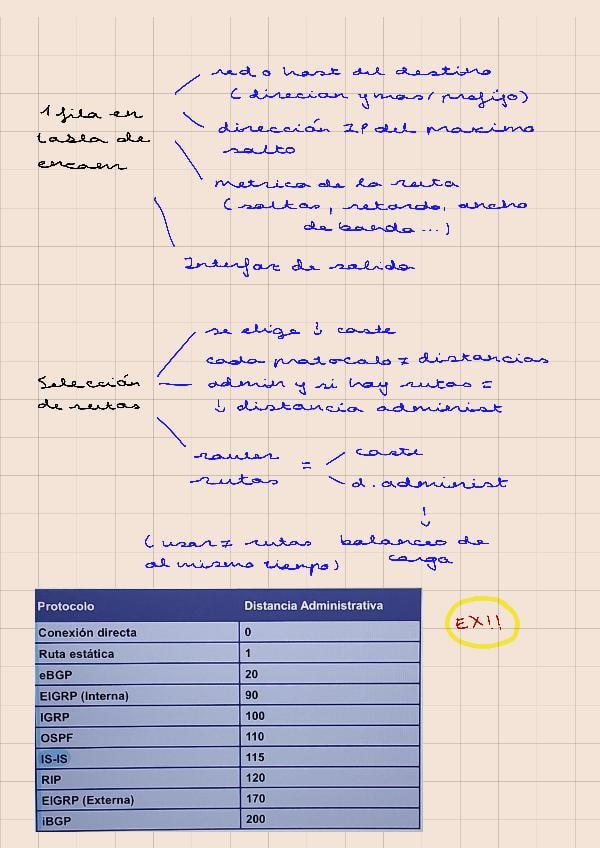 1 fila en
tabla de
encam
red o host del destino
(direcian y mas/ prefijo)
dirección IP del proximo
salto
metrica de la ruta
(saltos, retardo, ancho
de banda...)
Interfaz de salida
Selección
de rutas
se elige ↓ coste
cada protocolo ≠ distancias
admin y si hay rutas =
↓ distancia administ
router
rutas
=
coste
d. administ
↓
(usar ≠ rutas
al mismo tiempo)
balanceo de
carga
Protocolo Distancia Administrativa
Conexión directa 0
Ruta estática 1
eBGP 20
EIGRP (Interna) 90
IGRP 100
OSPF 110
IS-IS 115
RIP 120
EIGRP (Externa) 170
iBGP 200
EX!!